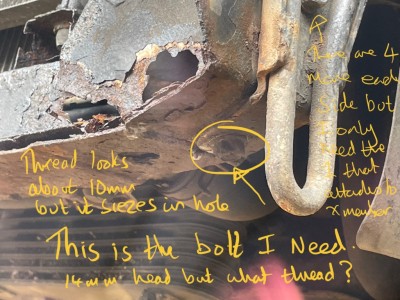 There are 4
more each
side but
I only
need the
that
attached to
x member
Thread looks
about 10mm
but it siezes in hole
This is the bolt I Need.
14mm head but what thread?